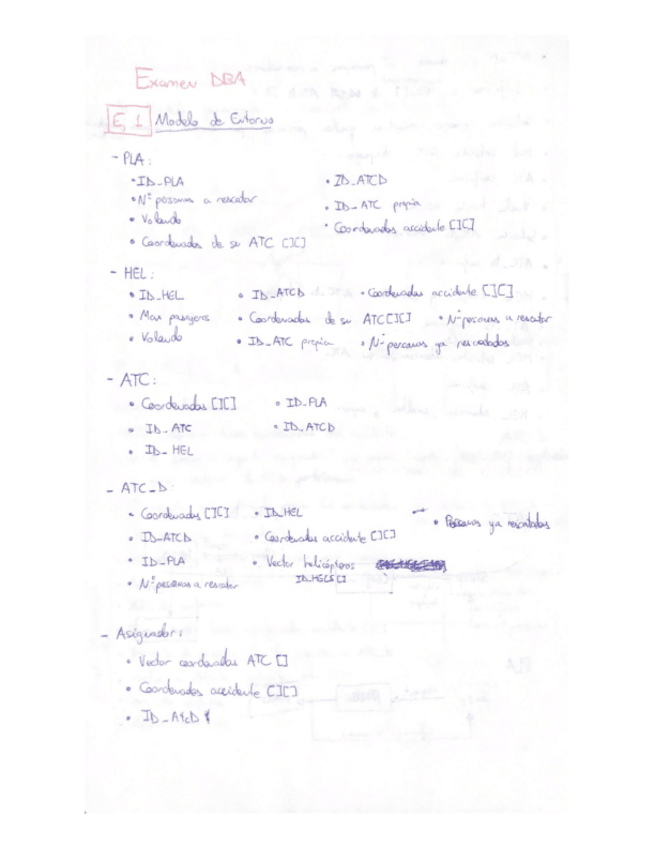 Examen DBA
E.1 Modelo de Entorno
- PLA:
• ID_PLA • ID_ATCD
• Nº personas a rescatar • ID_ATC propia
• Volando • Coordenadas accidente [][]
• Coordenadas de su ATC [][]
- HEL:
• ID_HEL • ID_ATCD • Coordenadas accidente [][]
• Max pasajeros • Coordenadas de su ATC[][] • Nº personas a rescatar
• Volando • ID_ATC propia • Nº personas ya rescatadas
- ATC:
• Coordenadas [][] • ID_PLA
• ID_ATC • ID_ATCD
• ID_HEL
- ATC_D:
• Coordenadas [][] • ID_HEL • Personas ya rescatadas
• ID_ATCD • Coordenadas accidente [][]
• ID_PLA • Vector helicópteros
• Nº personas a rescatar ID_HELS[]
- Asignador:
• Vector coordenadas ATC []
• Coordenadas accidente [][]
• ID_ATCD